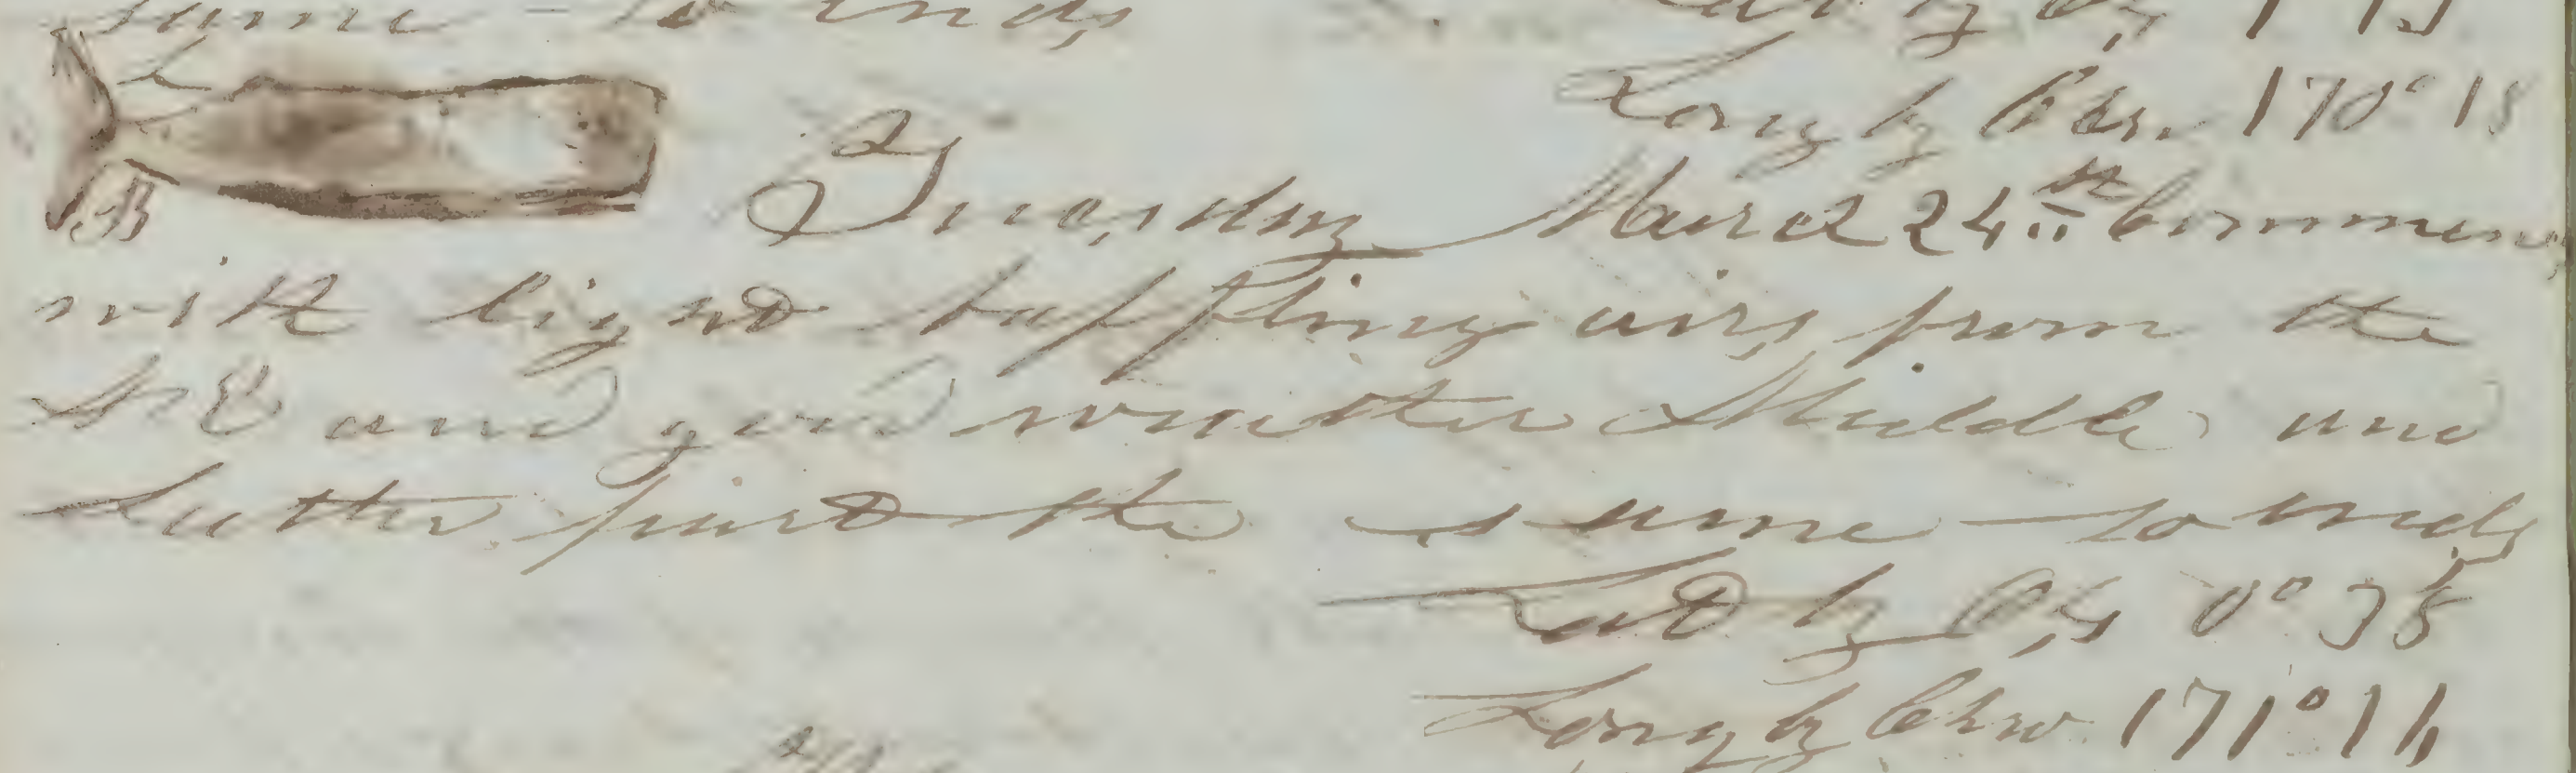 same to ends
Long by Chr. 170° 18
L B
Tuesday March 24th Commenc
with light baffling airs from the
and good weather Middle and
Latter part the same to ends
Latd by Obs 0° 38
Long by Chro 171° 16